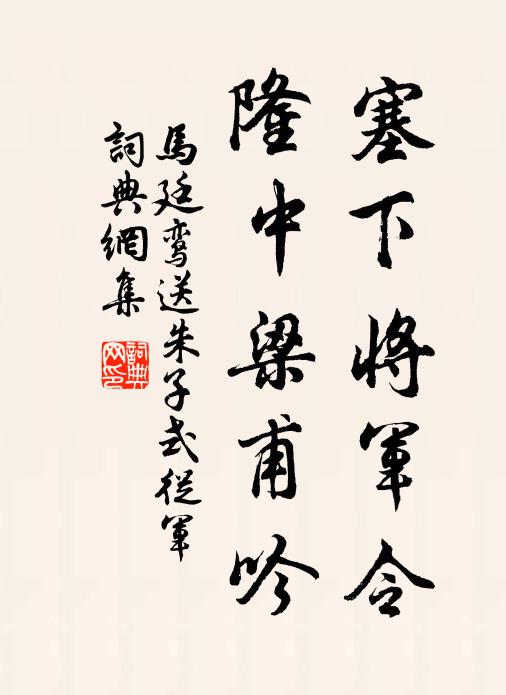 塞下將軍令
隆中梁甫吟
馬廷鸾送朱子式從軍
詞典網集
詞典网印